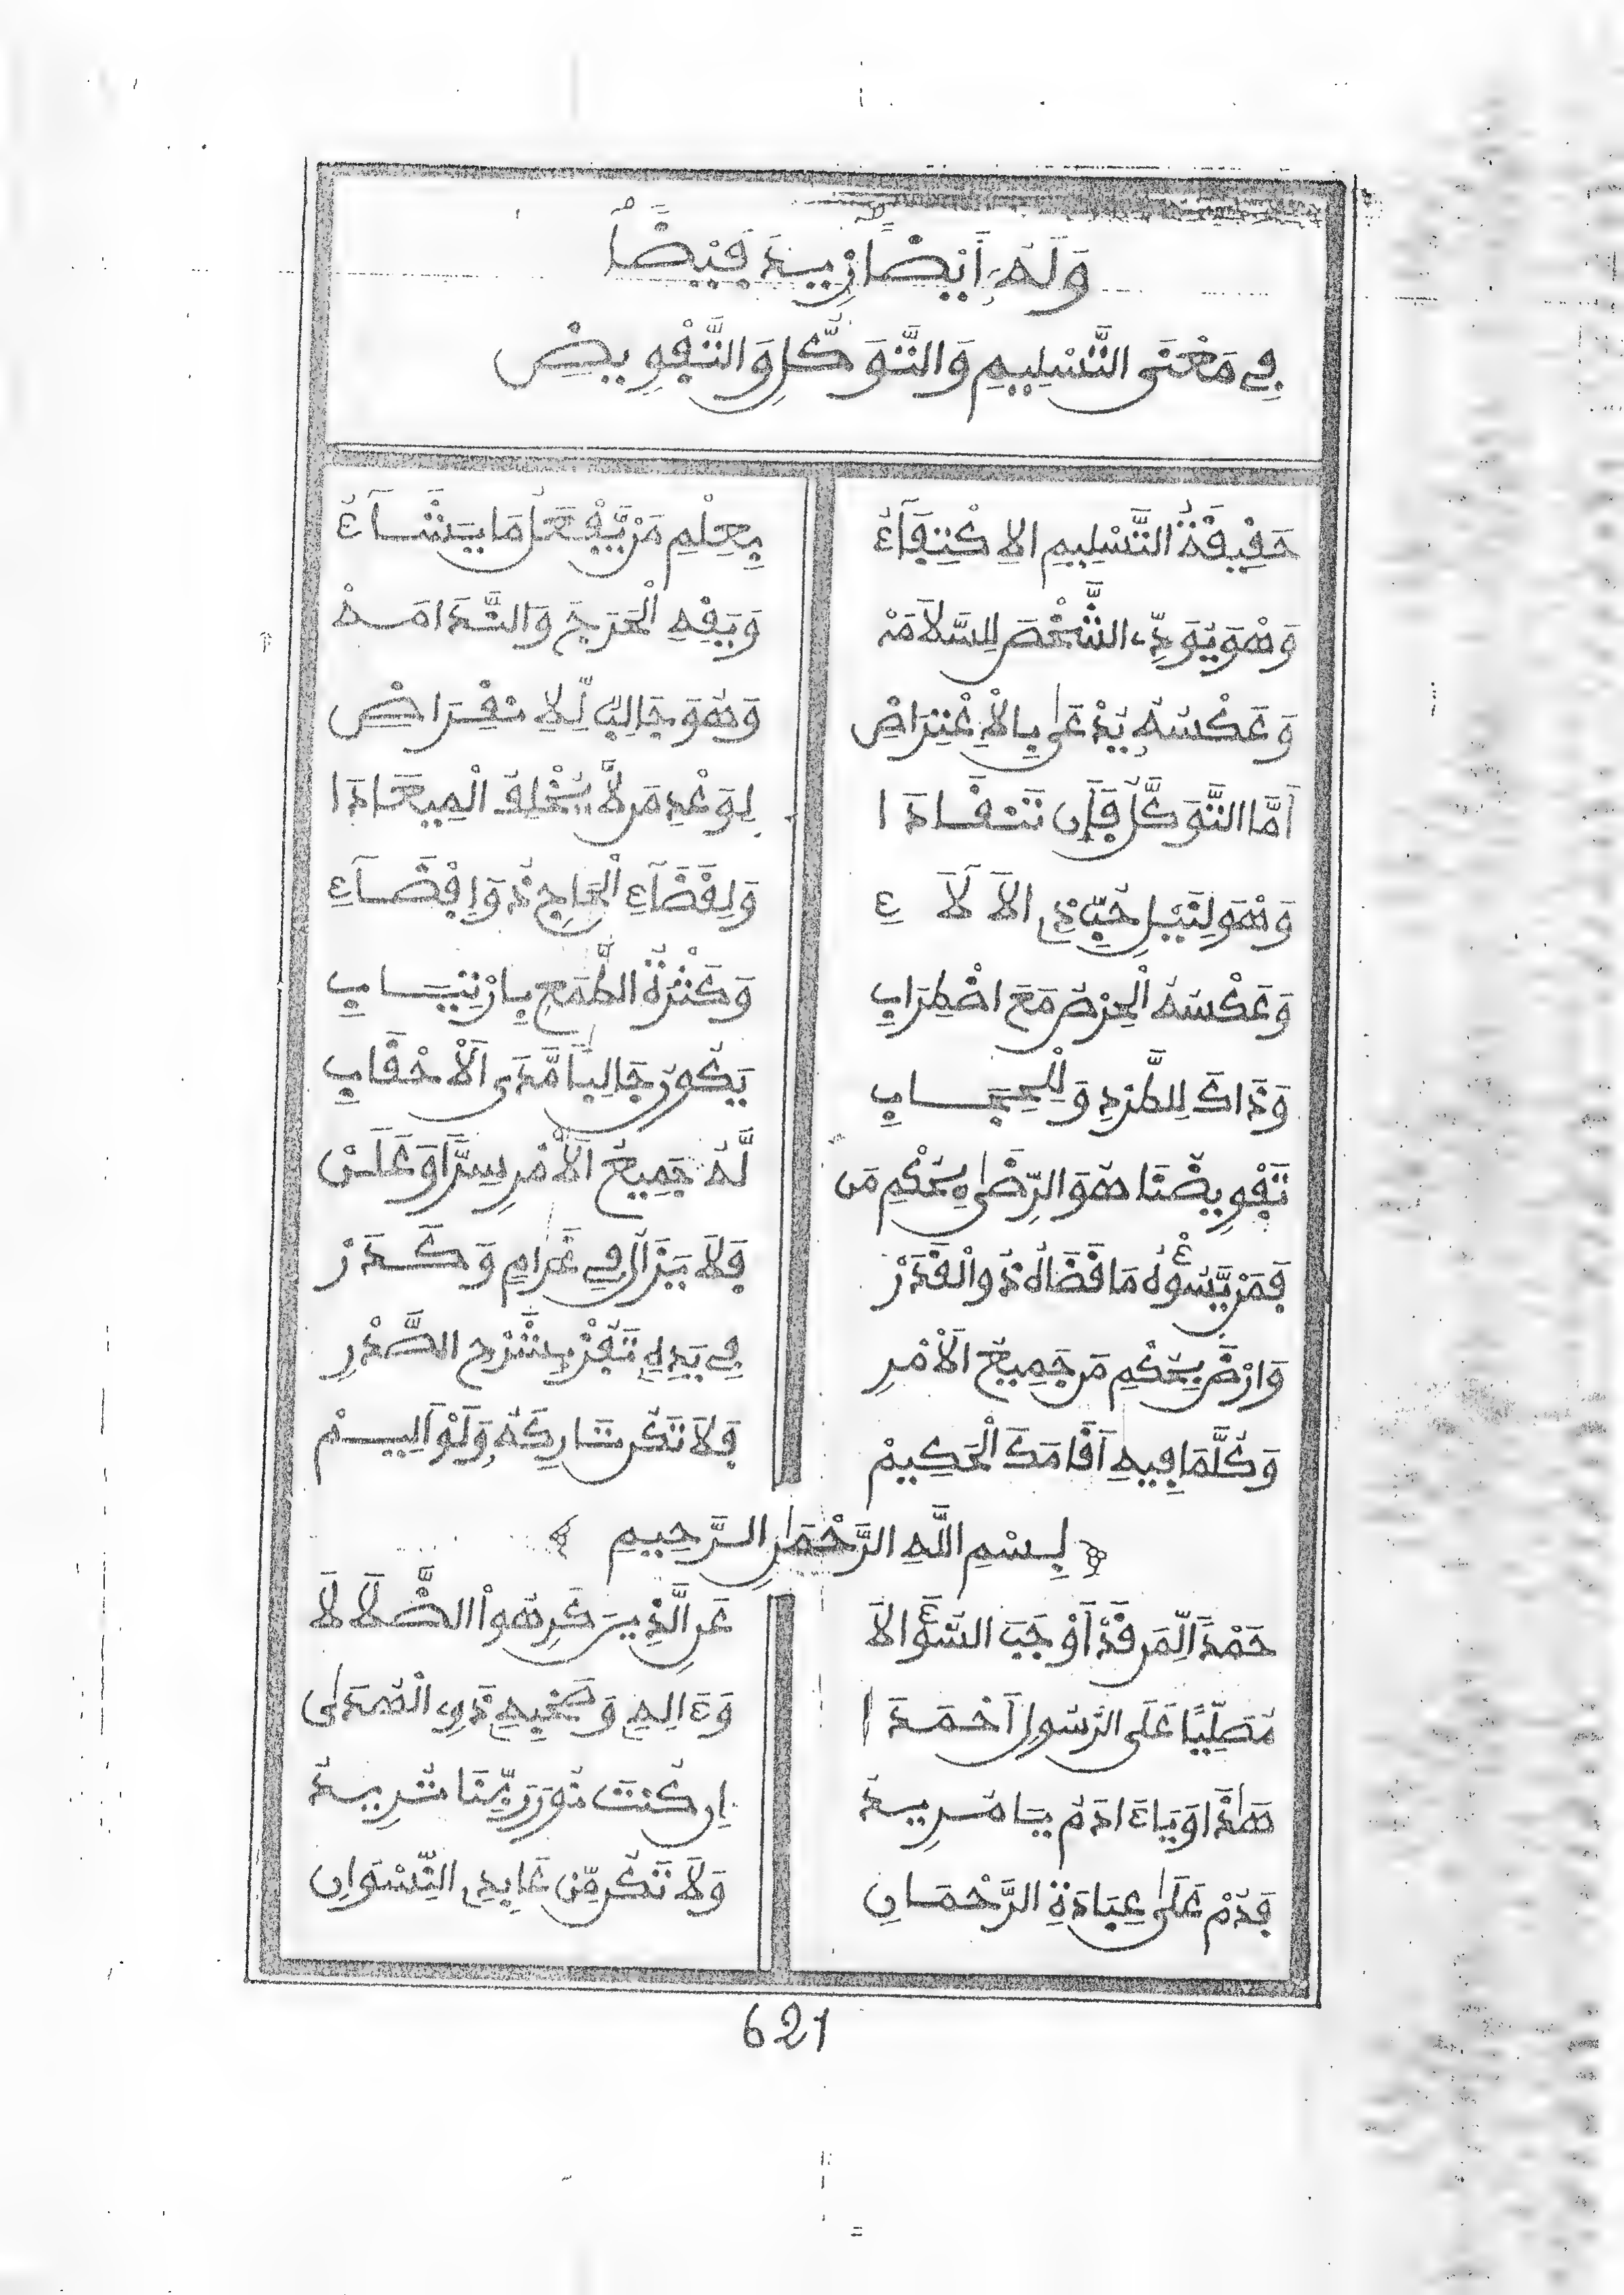 وَلَهُ أَيْضًا زِيدَ فَيْضًا
فِي مَعْنَى التَّسْلِيمِ وَالتَّوَكُّلِ وَالتَّفْوِيضِ
حَقِيقَةُ التَّسْلِيمِ الِاكْتِفَآءُ بِعِلْمِ مَن يَّفْعَلُ مَا يَشَآءُ
وَهْوَ يُؤَدِّي الشَّخْصَ لِلسَّلَامَهْ وَيَقِهِ الْحَرَجَ وَالنَّدَامَهْ
وَعَكْسُهُ يُدْعَى بِالِاعْتِرَاضِ وَهُوَ جَالِبٌ لِّلِانقِرَاضِ
أَمَّا التَّوَكُّلُ فَأَن تَنقَادَا لِوَعْدِ مَن لَّا يُخْلِفُ الْمِيعَادَا
وَهْوَ لِنَيْلِ حُبِّ ذِي الْآلَاءِ وَلِقَضَآءِ الْحَاجِ ذُو اقْتِضَآءِ
وَعَكْسُهُ الْحِرْصُ مَعَ اضْطِرَابِ وَكَثْرَةُ الطَّمَعِ بِارْتِيَابِ
وَذَاكَ لِلطَّرْدِ وَلِلْحِجَابِ يَكُونُ جَالِبًا مَّدَى الْأَحْقَابِ
تَفْوِيضُنَا هُوَ الرِّضَى بِحُكْمِ مَن لَّهُ جَمِيعُ الْأَمْرِ سِرًّا وَعَلَنْ
فَمَن يَّسُؤْهُ مَا قَضَاهُ ذُو الْقَدَرْ فَلَا يَزَالُ فِي غَرَامٍ وَكَدَرْ
وَارْضَ بِحُكْمِ مَن جَمِيعُ الْأَمْرِ فِي يَدِهِ تَفُزْ بِشَرْحِ الصَّدْرِ
وَكُلَّمَا فِيهِ أَقَامَكَ الْحَكِيمْ فَلَا تَكُن تَارِكَهُ وَلَوْ أَلِيمْ
بِسْمِ اللَّهِ الرَّحْمَنِ الرَّحِيمِ
حَمْدًا لِّمَن قَدْ أَوْجَبَ السُّؤَالَا عَنِ الَّذِينَ كَرِهُوا الضَّلَالَا
مُصَلِّيًا عَلَى الرَّسُولِ أَحْمَدَا وَءَالِهِ وَصَحْبِهِ ذَوِي الْهُدَى
هَذَا وَيَا ءَادَمُ يَا مُرِيدُ إِن كُنتَ نُورَ رَبِّنَا تُرِيدُ
فَدُمْ عَلَى عِبَادَةِ الرَّحْمَانِ وَلَا تَكُن مِّنْ عَابِدِي النِّسْوَانِ
621